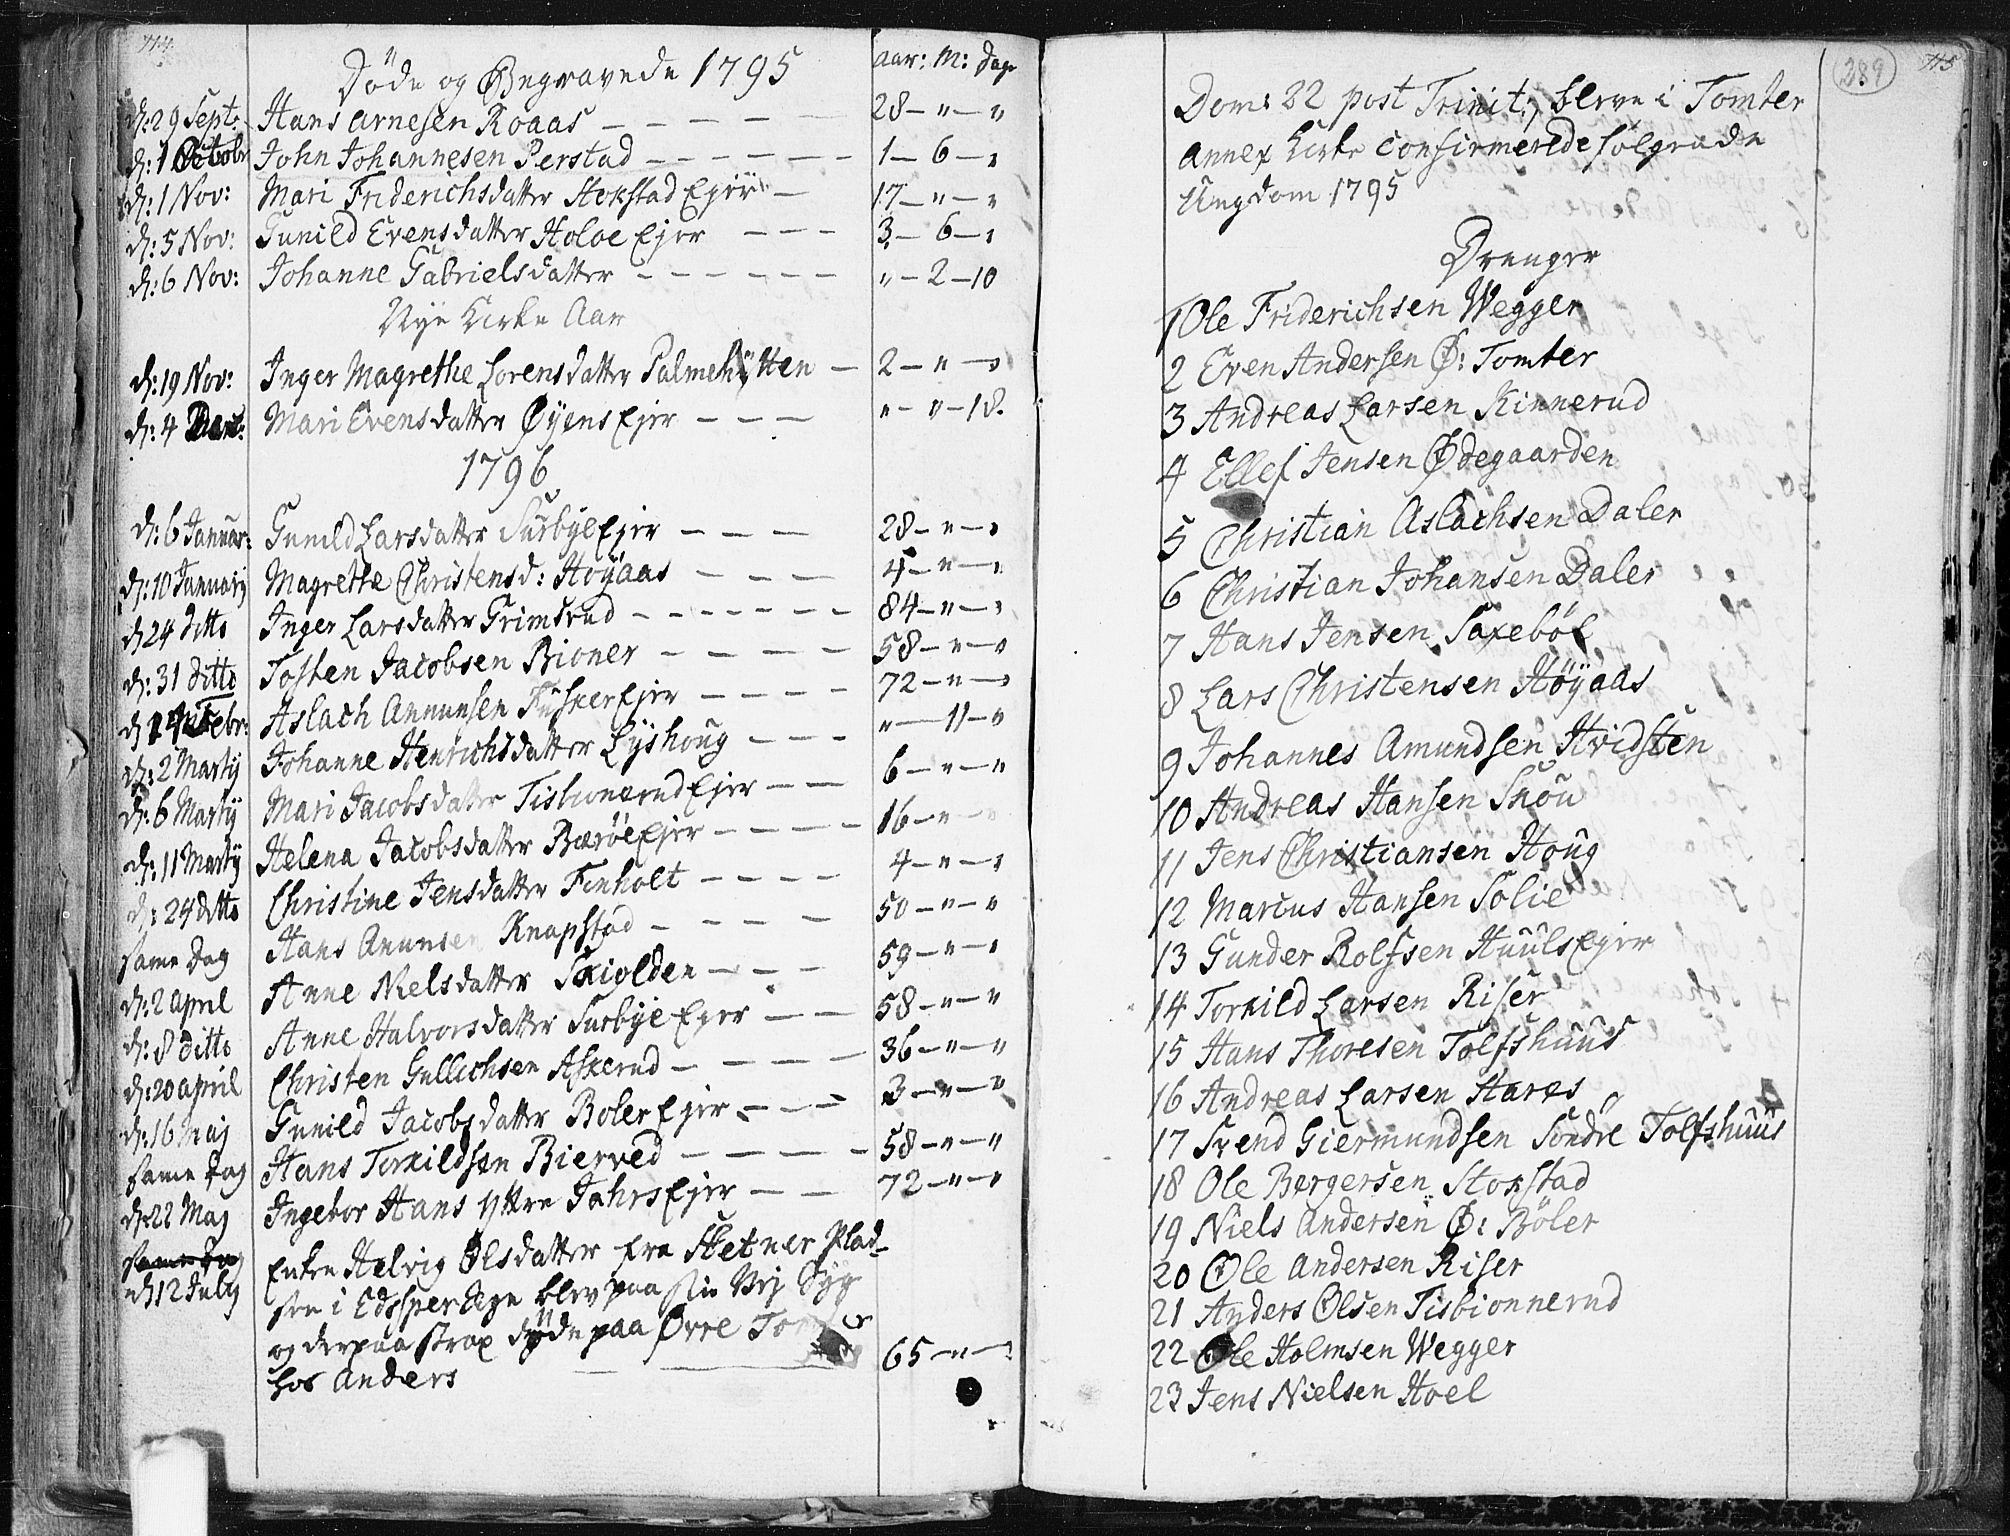 714.
Döde og Begravede 1795
Aar: M: Dage
d: 29 Sept: Hans Arnesen Roaas — — — — — 28 — " — "
d: 1 Octobr John Johannesen Perstad — — — — — 1 — 6 — "
d: 1 Nov: Mari Friderichsdatter Hokstad Ejer — 17 — " — "
d: 5 Nov: Gunild Evensdatter Holoe Ejer — — — 3 — 6 — "
d: 6 Nov: Johanne Gabrielsdatter — — — — — " — 2 — 10
Nye Kirke Aar
d: 19 Nov: Inger Magrethe Lorensdatter Palmehytten — 2 — " — "
d: 4 Mari Evensdatter Øyens Ejer — — — " — " — 18.
1796
d: 6 Januar: Gunild Larsdatter Susbye Ejer — — — 28 — " — "
d: 10 Januarij Magrethe Christensd: Höyaas — — — 4 — " — "
d 24 ditto Inger Larsdatter Grimsrud — — — — — 84 — " — "
d: 31 ditto Tosten Jacobsen Bioner — — — — 58 — " — "
d 14 Febr: Aslach Annunsen Fusker Ejer — — — — 72 — " — "
d: 2 Martij Johanne Henrichsdatter Lyshoug — — — " — 11 — "
d: 6 Martij Mari Jacobsdatter Tisbionnerud Ejer — — 6 — " — "
d: 11 Martij Helena Jacobsdatter Bæröe Ejer — — — — 16 — "
d: 24 ditto Christine Jensdatter Finholt — — — — 4 — " — "
same Dag Hans Anunsen Knapstad — — — — 50 — " — "
d: 2 April Anne Nielsdatter Skiolden — — — 59 — " — "
d: 8 ditto Anne Halvorsdatter Susbye Ejer — — 58 — " — "
d: 20 April Christen Gullichsen Askerud — — — — 36 — " — "
d: 16 Maj Gunild Jacobsdatter Boler Ejer — — — 3 — " — "
same Dag Hans Torkildsen Bierved — — — — — 58 — " — "
d: 22 Maj Ingebor Hans Yttre Jahrs Ejer — — 72 — " — "
same Dag
d 12 July Enken Helvig Olsdatter fra Sletner Plad-
sen i Edsper blev paa sin Vej Syg
og derpaa strax døde paa Øvre Tomter
hos Anders — — — 65 — " — "
289
715
Dom: 22 post Trinit:, bleve i Tomter
Annex Kirke Confirmerede følgende
Ungdom 1795
Drenger
1 Ole Friderichsen Wegger
2 Even Andersen Ø: Tomter
3 Andreas Larsen Kinnerud
4 Ellef Jensen Ødegaarden
5 Christian Aslachsen Daler
6 Christian Johansen Daler
7 Hans Jensen Saxeböl
8 Lars Christensen Höyaas
9 Johannes Amundsen Hvidsten
10 Andreas Hansen Snou
11 Jens Christiansen Houg
12 Marcus Hansen Solie
13 Gunder Rolfsen Huuls Ejer
14 Torkild Larsen Riser
15 Hans Thoresen Tolfshuus
16 Andreas Larsen Hares
17 Svend Giermundsen Söndre Tolfshuus
18 Ole Bergersen Stokstad
19 Niels Andersen Ø: Böler
20 Ole Andersen Riser
21 Anders Olsen Tisbionnerud
22 Ole Holmsen Wegger
23 Jens Nielsen Hoel